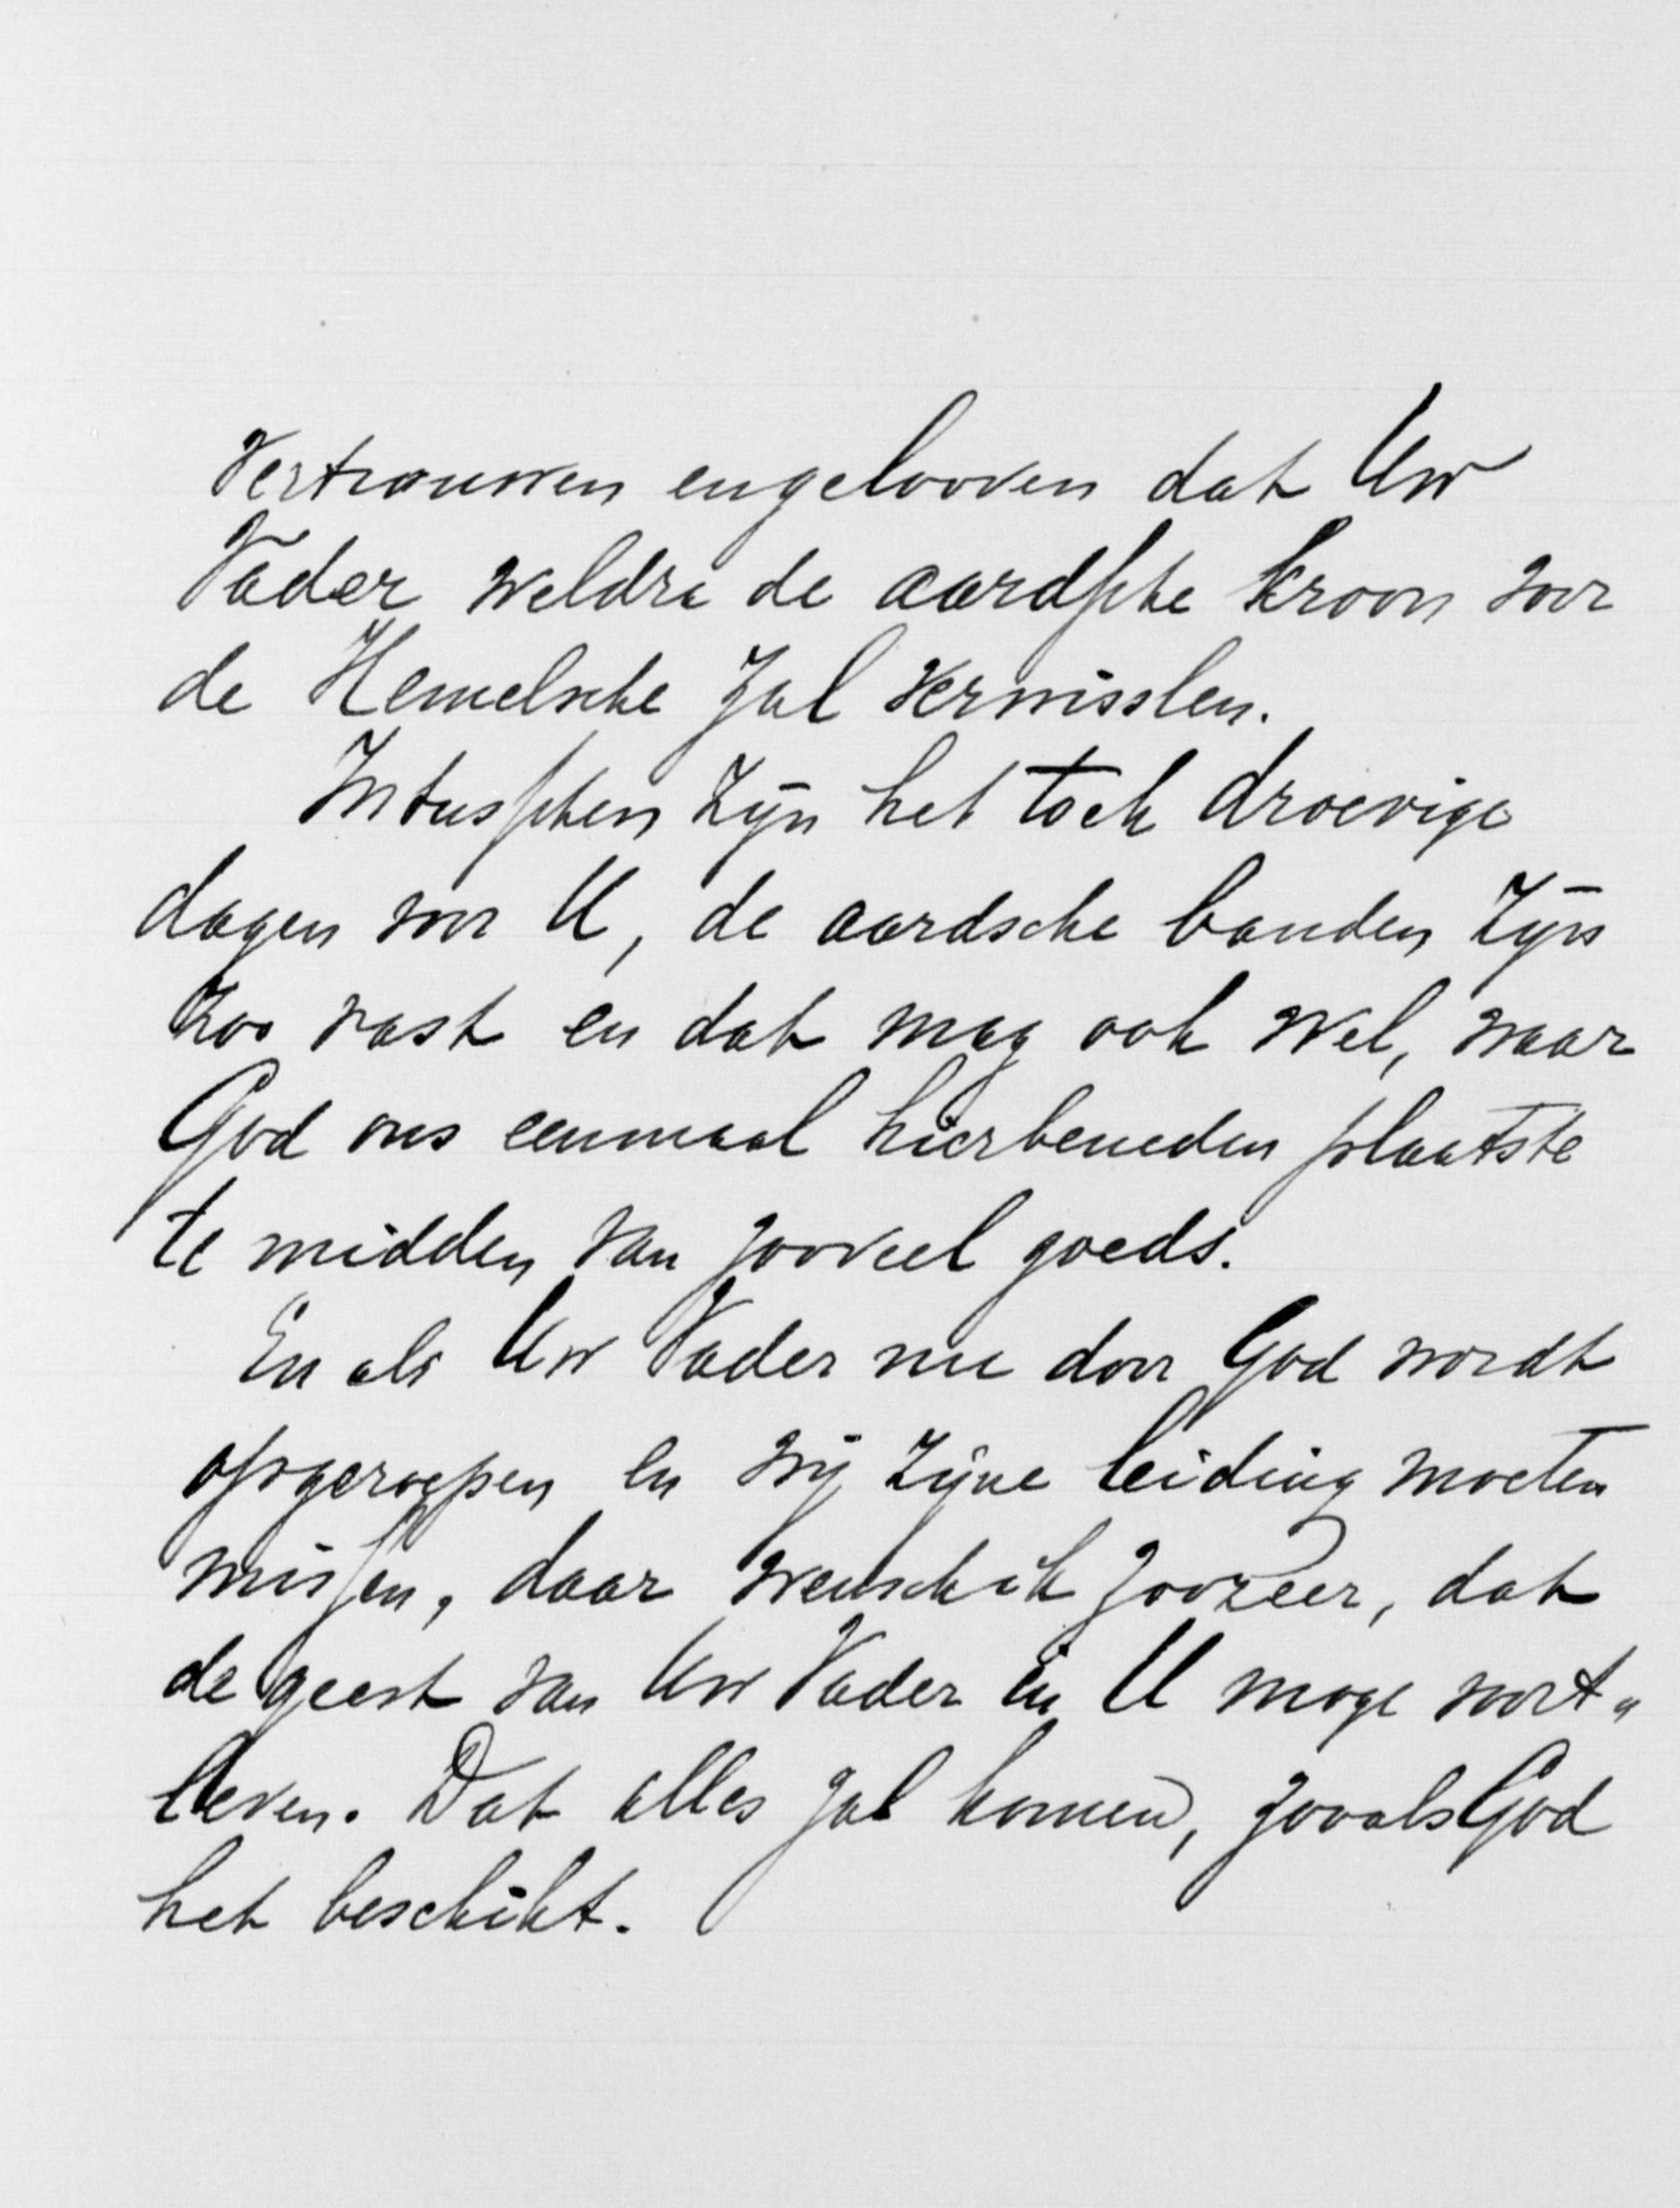 vertrouwen en gelooven dat Uw
Vader weldra de aardsche kroon voor
de Hemelsche zal verwisslen.
Intusschen zijn het toch droevige
dagen voor U, de aardsche banden zijn
zoo vast en dat mag ook wel, waar
God ons eenmaal hierbeneden plaatste
te midden van zooveel goeds.
En als Uw Vader nu door God wordt
opgeroepen en wij zijne leiding moeten
missen, daar wensch ik zoozeer, dat
de geest van Uw Vader in U moge voort„
leven. Dat alles zal komen, zooals God
het beschikt.